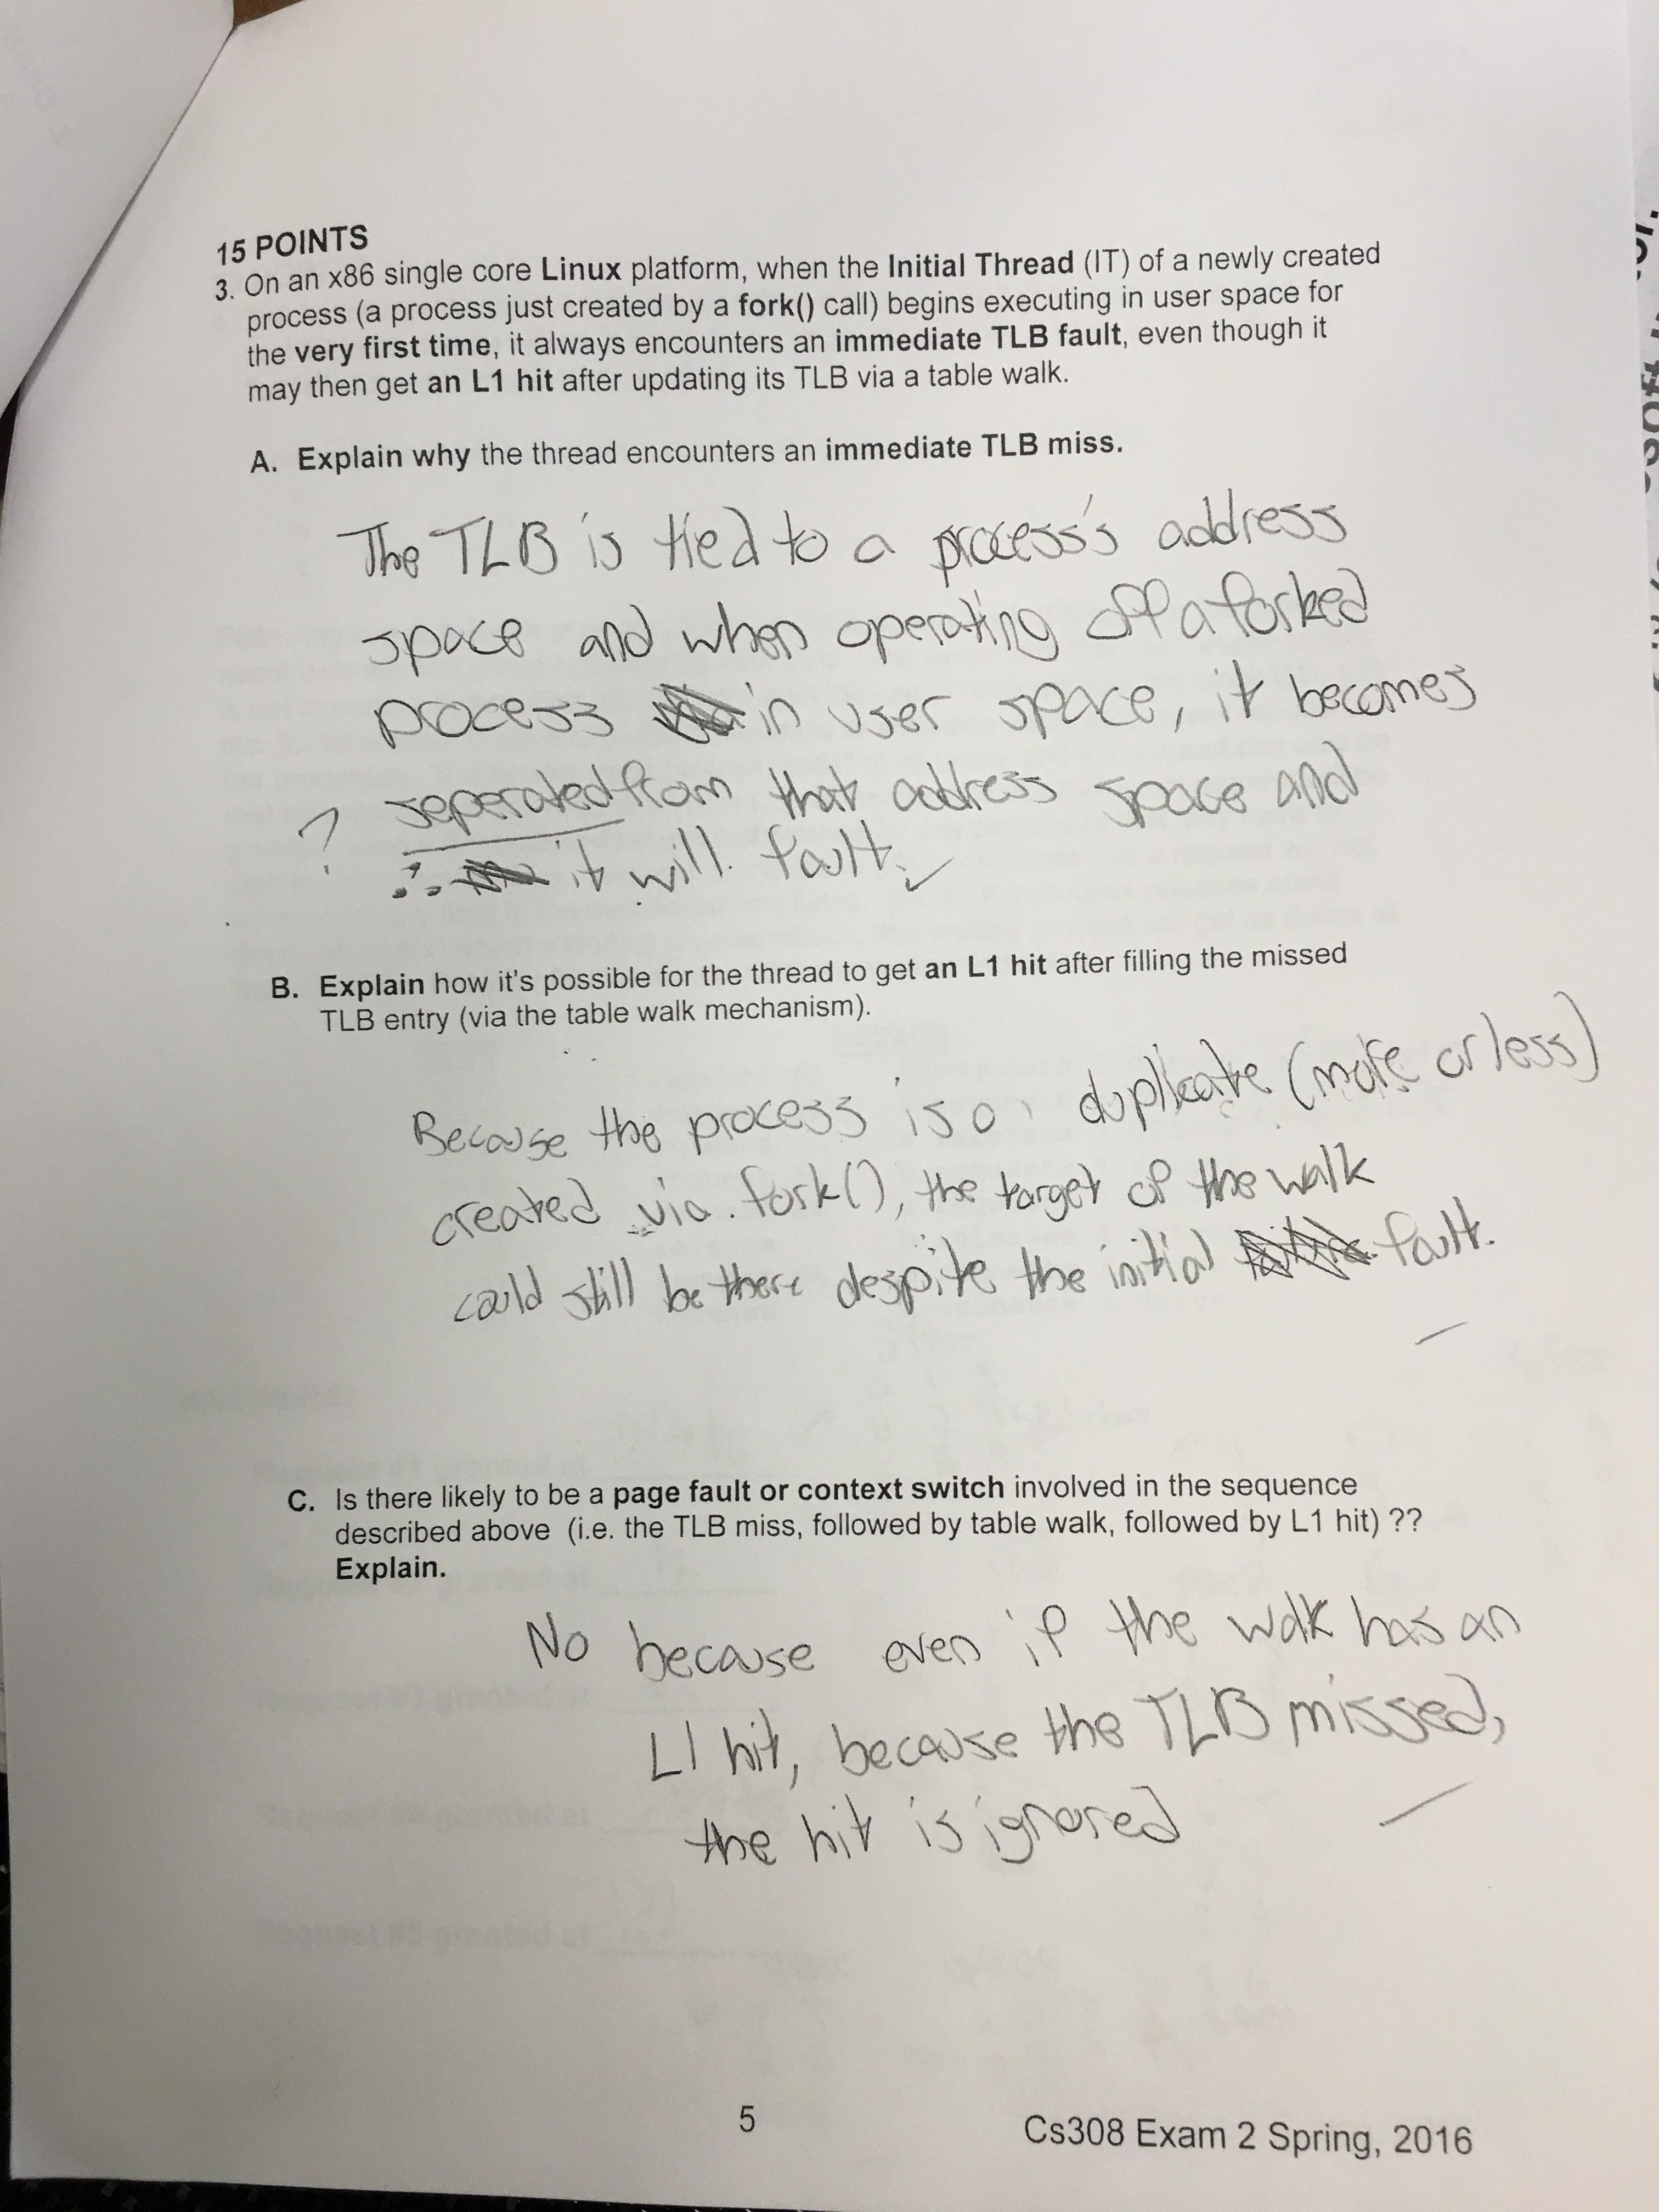 15 POINTS
3. On an x86 single core Linux platform, when the Initial Thread (IT) of a newly created
process (a process just created by a fork() call) begins executing in user space for
the very first time, it always encounters an immediate TLB fault, even though it
may then get an L1 hit after updating its TLB via a table walk.
A. Explain why the thread encounters an immediate TLB miss.
The TLB is tied to a process's address
space and when operating off a forked
process in user space, it becomes
? seperated from that address space and
∴ it will fault. ✓
B. Explain how it's possible for the thread to get an L1 hit after filling the missed
TLB entry (via the table walk mechanism).
Because the process is a duplicate (more or less)
created via fork(), the target of the walk
could still be there despite the initial fault.
C. Is there likely to be a page fault or context switch involved in the sequence
described above (i.e. the TLB miss, followed by table walk, followed by L1 hit) ??
Explain.
No because even if the walk has an
L1 hit, because the TLB missed,
the hit is ignored
5
Cs308 Exam 2 Spring, 2016